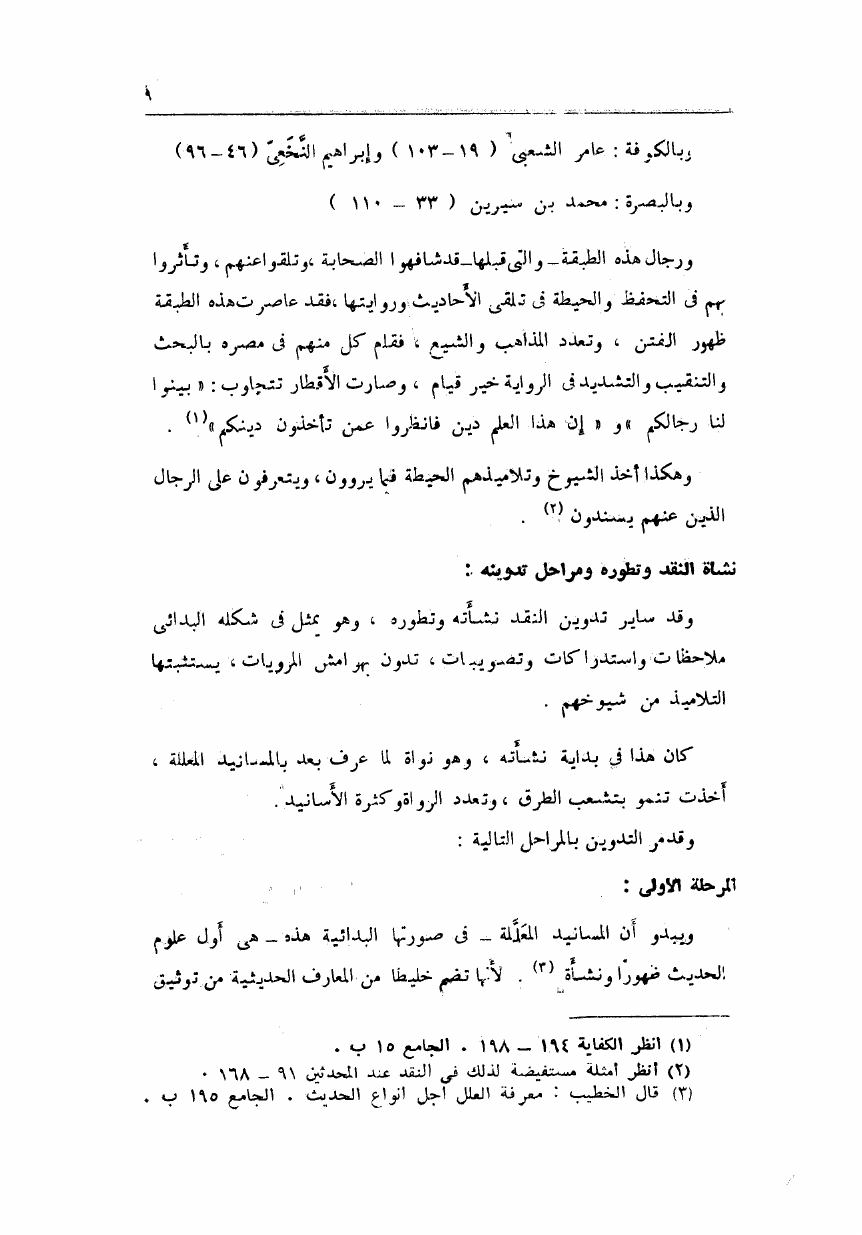 ٩
وبالكوفة : عامر الشعبى ( ١٩ – ١٠٣ ) وإبراهيم النَّخَعِىّ (٤٦ – ٩٦)
وبالبصرة : محمد بن سيرين ( ٣٣ – ١١٠ )
ورجال هذه الطبقة – والتى قبلها – قد شافهوا الصحابة ، وتلقوا عنهم ، وتأثروا
بهم فى التحفظ والحيطة فى تلقى الأحاديث وروايتها ، فقد عاصرت هذه الطبقة
ظهور الفتن ، وتعدد المذاهب والشيع ، فقام كل منهم فى مصره بالبحث
والتنقيب والتشديد فى الرواية خير قيام ، وصارت الأقطار تتجاوب : « بينوا
لنا رجالكم » و « إن هذا العلم دين فانظروا عمن تأخذون دينكم » (١) .
وهكذا أخذ الشيوخ وتلاميذهم الحيطة فيما يروون ، ويتعرفون على الرجال
الذين عنهم يسندون (٢) .
نشأة النقد وتطوره ومراحل تدوينه :
وقد ساير تدوين النقد نشأته وتطوره ، وهو يمثل فى شكله البدائى
ملاحظات واستدراكات وتصويبات ، تدون بهوامش المرويات ، يستثبتها
التلاميذ من شيوخهم .
كان هذا فى بداية نشأته ، وهو نواة لما عرف بعد بالمسانيد المعللة ،
أخذت تنمو بتشعب الطرق ، وتعدد الرواة وكثرة الأسانيد .
وقد مر التدوين بالمراحل التالية :
المرحلة الأولى :
ويبدو أن المسانيد المُعَلَّلة – فى صورتها البدائية هذه – هى أول علوم
الحديث ظهورًا ونشأة (٣) . لأنها تضم خليطا من المعارف الحديثية من توثيق
(١) انظر الكفاية ١٩٤ – ١٩٨ . الجامع ١٥ ب .
(٢) أنظر أمثلة مستفيضة لذلك فى النقد عند المحدثين ٩١ – ١٦٨ .
(٣) قال الخطيب : معرفة العلل أجل أنواع الحديث . الجامع ١٩٥ ب .